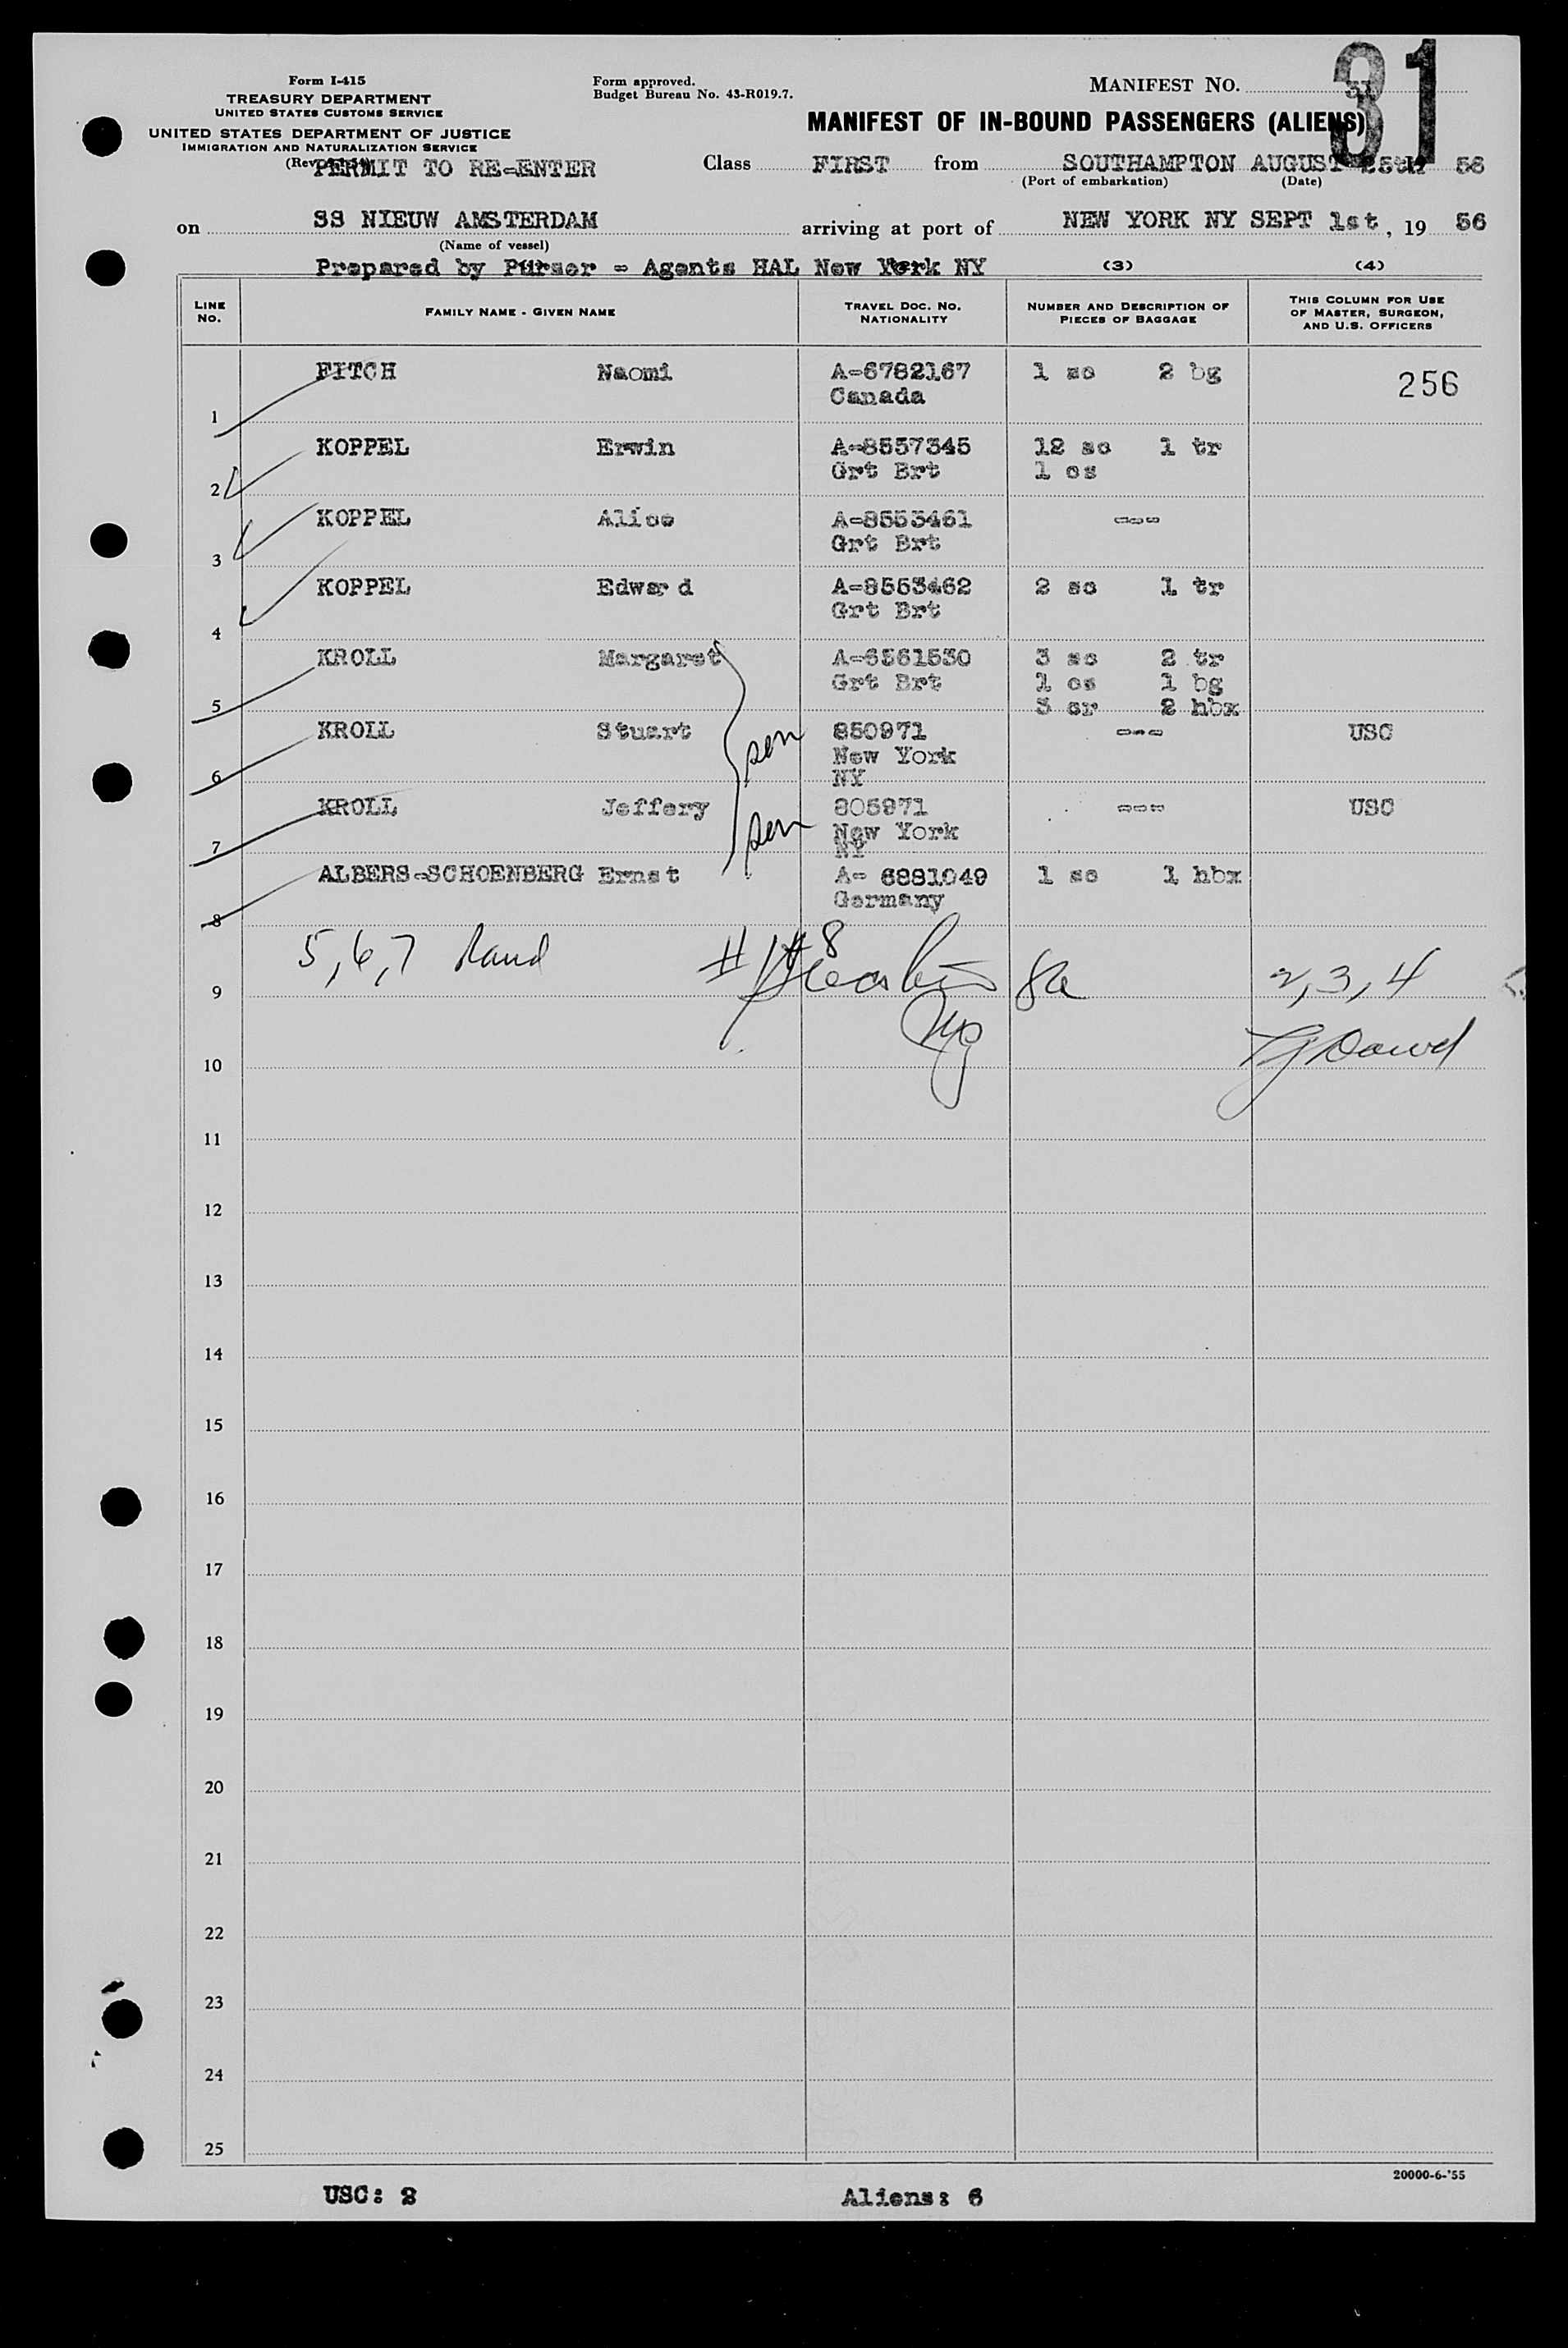 Form I-415
TREASURY DEPARTMENT
UNITED STATES CUSTOMS SERVICE
UNITED STATES DEPARTMENT OF JUSTICE
IMMIGRATION AND NATURALIZATION SERVICE
PERMIT TO RE-ENTER
Form approved.
Budget Bureau No. 43-R019.7.
MANIFEST NO. 31
MANIFEST OF IN-BOUND PASSENGERS (ALIENS)
Class FIRST from SOUTHAMPTON AUGUST 25th 56
(Port of embarkation) (Date)
on SS NIEUW AMSTERDAM arriving at port of NEW YORK NY SEPT 1st, 19 56
(Name of vessel)
Prepared by Purser - Agents HAL New York NY (3) (4)
LINE NO. FAMILY NAME - GIVEN NAME TRAVEL DOC. NO. NATIONALITY NUMBER AND DESCRIPTION OF PIECES OF BAGGAGE THIS COLUMN FOR USE OF MASTER, SURGEON, AND U.S. OFFICERS
1 FITCH Naomi A-6782167 1 sc 2 bg 256
Canada
2 KOPPEL Erwin A-8557345 12 sc 1 tr
Grt Brt 1 cs
3 KOPPEL Alice A-8553461 ---
Grt Brt
4 KOPPEL Edward A-8553462 2 sc 1 tr
Grt Brt
5 KROLL Margaret A-6561530 3 sc 2 tr
Grt Brt 1 cs 1 bg
3 sr 2 hbx
6 KROLL Stuart son 850971 --- USC
New York
NY
7 KROLL Jeffery son 805971 --- USC
New York
NY
8 ALBERS-SCHOENBERG Ernst A- 6881049 1 sc 1 hbx
Germany
5,6,7 #1 #8 2,3,4
9
10
11
12
13
14
15
16
17
18
19
20
21
22
23
24
25
20000-6-'55
USC: 2 Aliens: 6